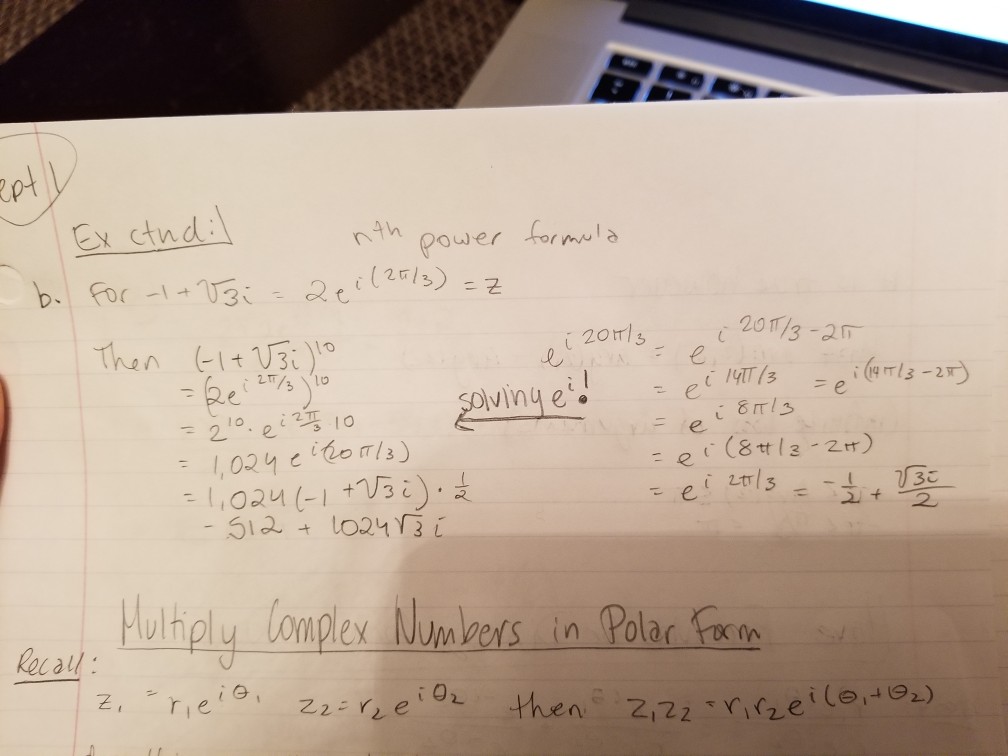 ept 1
Ex ctnd:
nth power formula
b. For -1 + √3i = 2e^i(2π/3) = z
Then (-1 + √3i)^10
= (2e^i 2π/3)^10
= 2^10 · e^i 2π/3 10
= 1,024 e^i(20π/3)
= 1,024 (-1 + √3 i) · 1/2
- 512 + 1024√3 i
solving e^i!
e^i 20π/3 = e^i 20π/3 - 2π
= e^i 14π/3 = e^i(14π/3 - 2π)
= e^i 8π/3
= e^i (8π/3 - 2π)
= e^i 2π/3 = -1/2 + √3i/2
Multiply Complex Numbers in Polar Form
Recall:
z₁ = r₁e^iθ₁ z₂ = r₂e^iθ₂ then z₁z₂ = r₁r₂e^i(θ₁+θ₂)